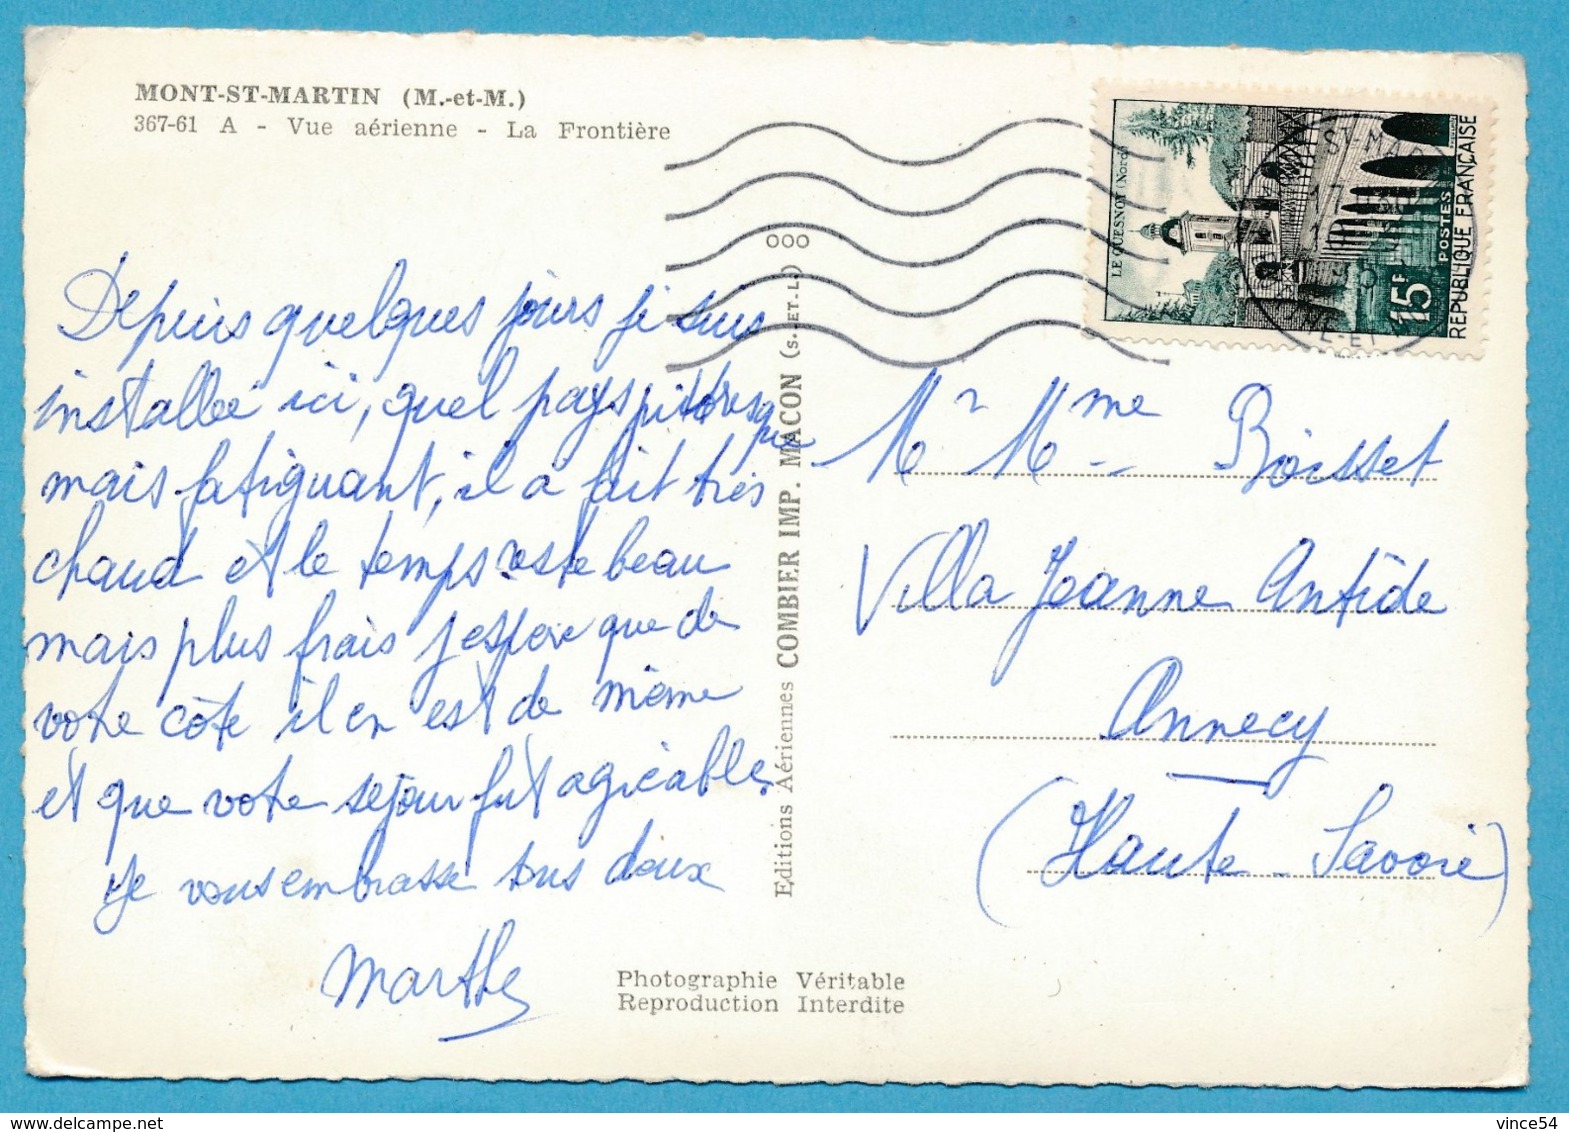 MONT-ST-MARTIN (M.-et-M.)
367-61 A - Vue aérienne - La Frontière
Depuis quelques jours je suis
installée ici, quel pays pittoresque
mais fatiguant, il a fait très
chaud et le temps reste beau
mais plus frais j'espère que de
votre côte il en est de même
et que votre séjour fut agréable,
je vous embrasse tous deux
Marthe
ooo
Editions Aériennes COMBIER IMP. MACON (S.-ET-L.)
Photographie Véritable
Reproduction Interdite
LE QUESNOY (Nord)
15F
POSTES
REPUBLIQUE FRANÇAISE
ST-MAR
Mr Mme Boisset
Villa Jeanne Antide
Annecy
(Haute-Savoie)
delcampe.net
vince54